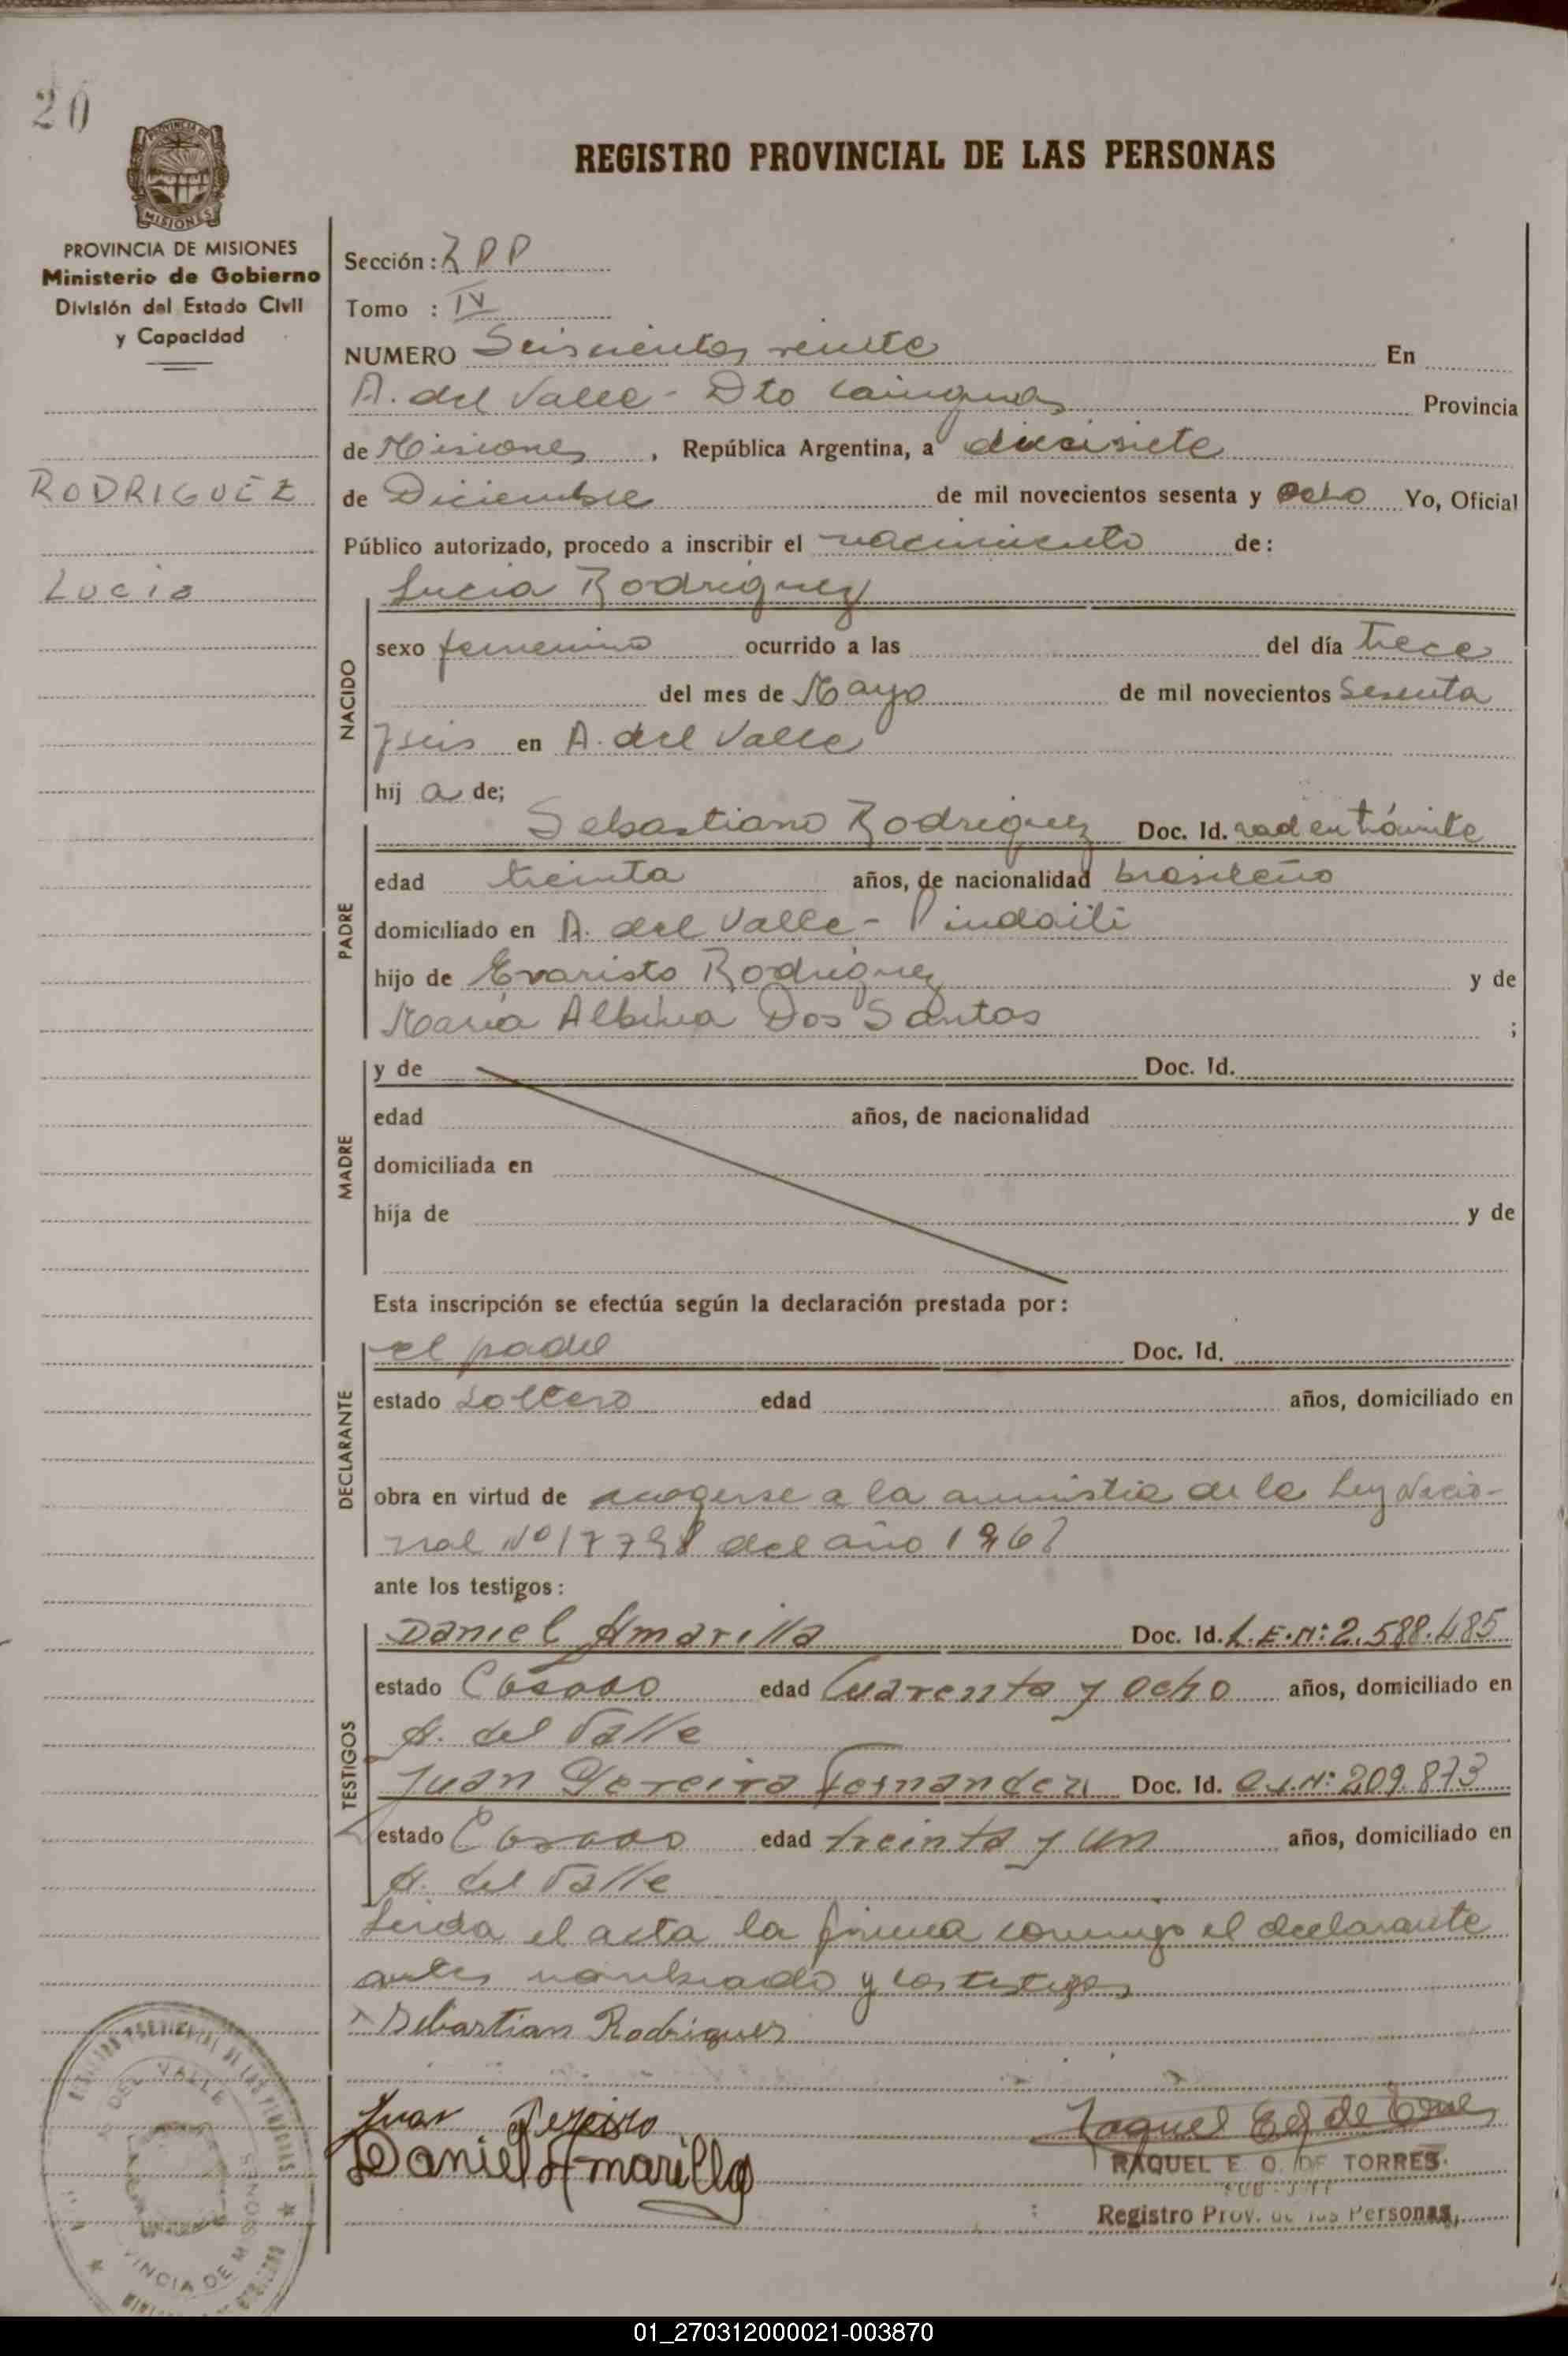 20
PROVINCIA DE
MISIONES
REGISTRO PROVINCIAL DE LAS PERSONAS
PROVINCIA DE MISIONES
Ministerio de Gobierno
División del Estado Civil
y Capacidad
RODRIGUEZ
Lucia
Sección:
Tomo : IV
NUMERO Seiscientos veinte En
A. del Valle - Dto Cainguas Provincia
de Misiones , República Argentina, a diecisiete
de Diciembre de mil novecientos sesenta y ocho Yo, Oficial
Público autorizado, procedo a inscribir el nacimiento de:
Lucia Rodriguez
NACIDO
sexo femenino ocurrido a las del día trece
del mes de Mayo de mil novecientos sesenta
y seis en A. del Valle
hij a de;
PADRE
Sebastiano Rodriguez Doc. Id. rad en trámite
edad treinta años, de nacionalidad brasileño
domiciliado en A. del Valle - Pindaiti
hijo de Evaristo Rodriguez y de
Maria Albina Dos Santos ;
MADRE
y de Doc. Id.
edad años, de nacionalidad
domiciliada en
hija de y de
Esta inscripción se efectúa según la declaración prestada por:
DECLARANTE
el padre Doc. Id.
estado soltero edad años, domiciliado en
obra en virtud de acogerse a la amnistia de la Ley Nacio-
nal Nº 17798 del año 1968
ante los testigos:
TESTIGOS
Daniel Amarilla Doc. Id. L.E.Nº: 2.588.485
estado Casado edad Cuarenta y ocho años, domiciliado en
A. del Valle
Juan Pereira Fernandez Doc. Id. C.I.Nº: 209.873
estado Casado edad treinta y un años, domiciliado en
A. del Valle
Leida el acta la firma conmigo el declarante
antes nombrado y los testigos
x Sebastian Rodriguez
Juan Pereira
Daniel Amarilla
Raquel E O de Torres
RAQUEL E. O. DE TORRES
Registro Prov. de las Personas
REGISTRO PROVINCIAL DE LAS PERSONAS
DEL VALLE
PROVINCIA DE MISIONES
01_270312000021-003870